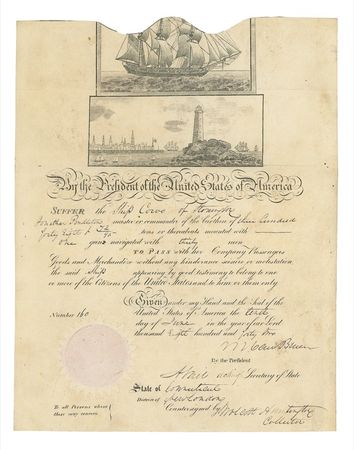 By the President of the United States of America
SUFFER the Ship Corvo of Stonington
Jonathan Pendleton master or commander of the burthen of three hundred
forty eight & tons or thereabouts mounted with
one guns navigated with thirty men
TO PASS with her Company Passengers
Goods and Merchandize without any hinderance seizure or molestation
the said Ship appearing by good testimony to belong to one
or more of the Citizens of the United States and to him or them only
Given under my Hand and the Seal of the
United States of America the
day of June in the year of our Lord
thousand Eight hundred and forty
Number 160
M Van Buren
By the President
acting Secretary of State
State of Connecticut
District of New London
Countersigned by Wolcott Huntington
Collector
To all Persons whom
these may concern